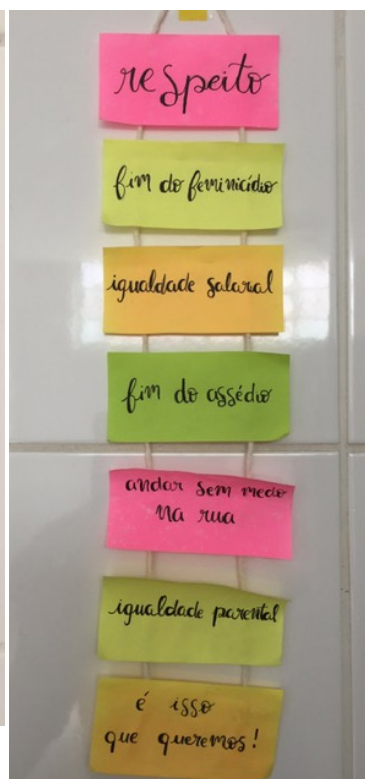 respeito
fim do feminicídio
igualdade salarial
fim do assédio
andar sem medo
na rua
igualdade parental
é isso
que queremos!